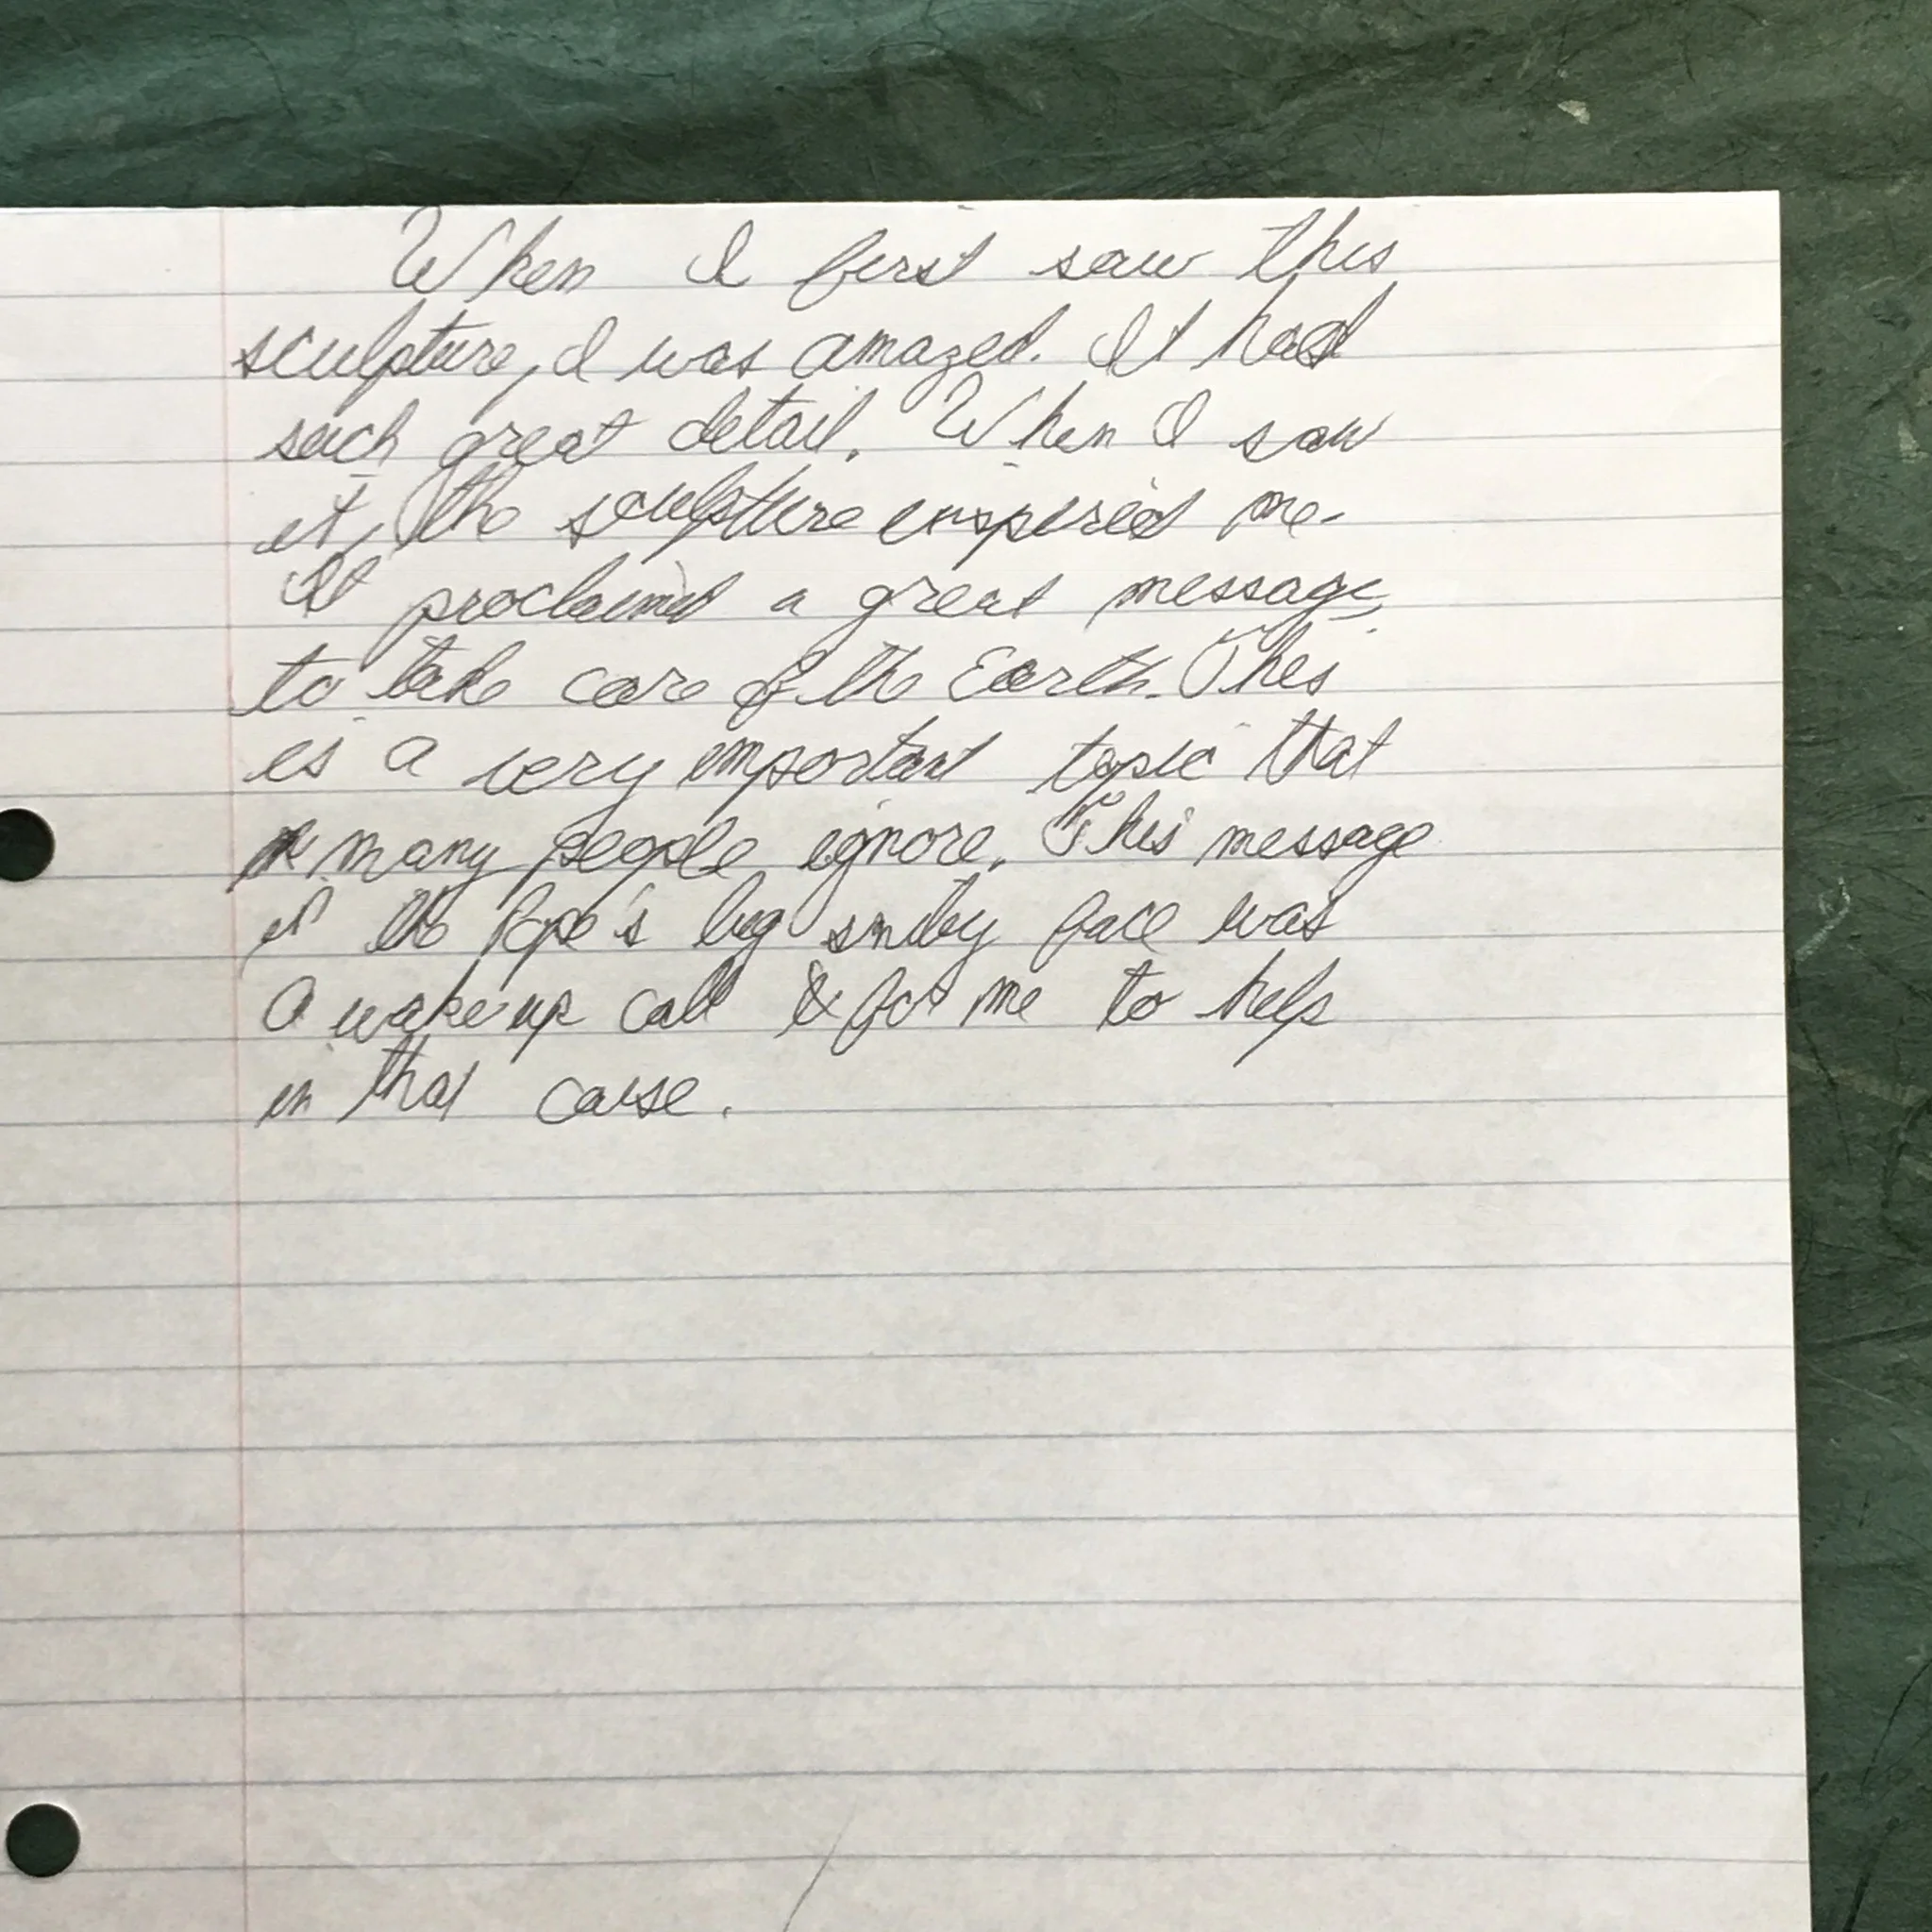 When I first saw this
sculpture, I was amazed. It had
such great detail. When I saw
it, the sculpture inspired me.
It proclaimed a great message
to take care of the Earth. This
is a very important topic that
many people ignore. This message
of the Pope's big smiley face was
a wake up call for me to help
in that cause.